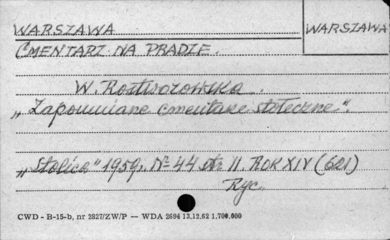 WARSZAWA
WARSZAWA
CMENTARZ NA PRADZE.
W. Roztworowska.
„Zapomniane cmentarze stołeczne".
„Stolica" 1959r. Nº 44 str 11. ROK XIV (621)
Ryc.
CWD - B-15-b, nr 2827/ZW/P — WDA 2694 13.12.62 1.700.000